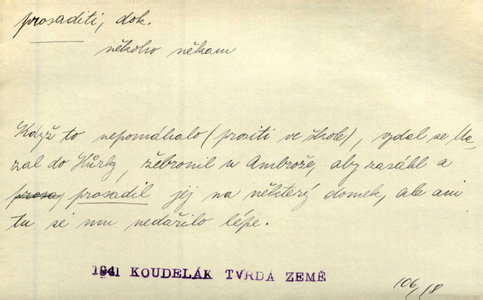 prosaditi, dok.
někoho někam
Když to nepomáhalo (prositi ve škole), vydal se Ma-
zal do Hůrky, žebronil u Ambrože, aby zasáhl a
prosadil jej na některý domek, ale ani
tu se mu nedařilo lépe.
1941 KOUDELÁK TVRDÁ ZEMĚ
106/18